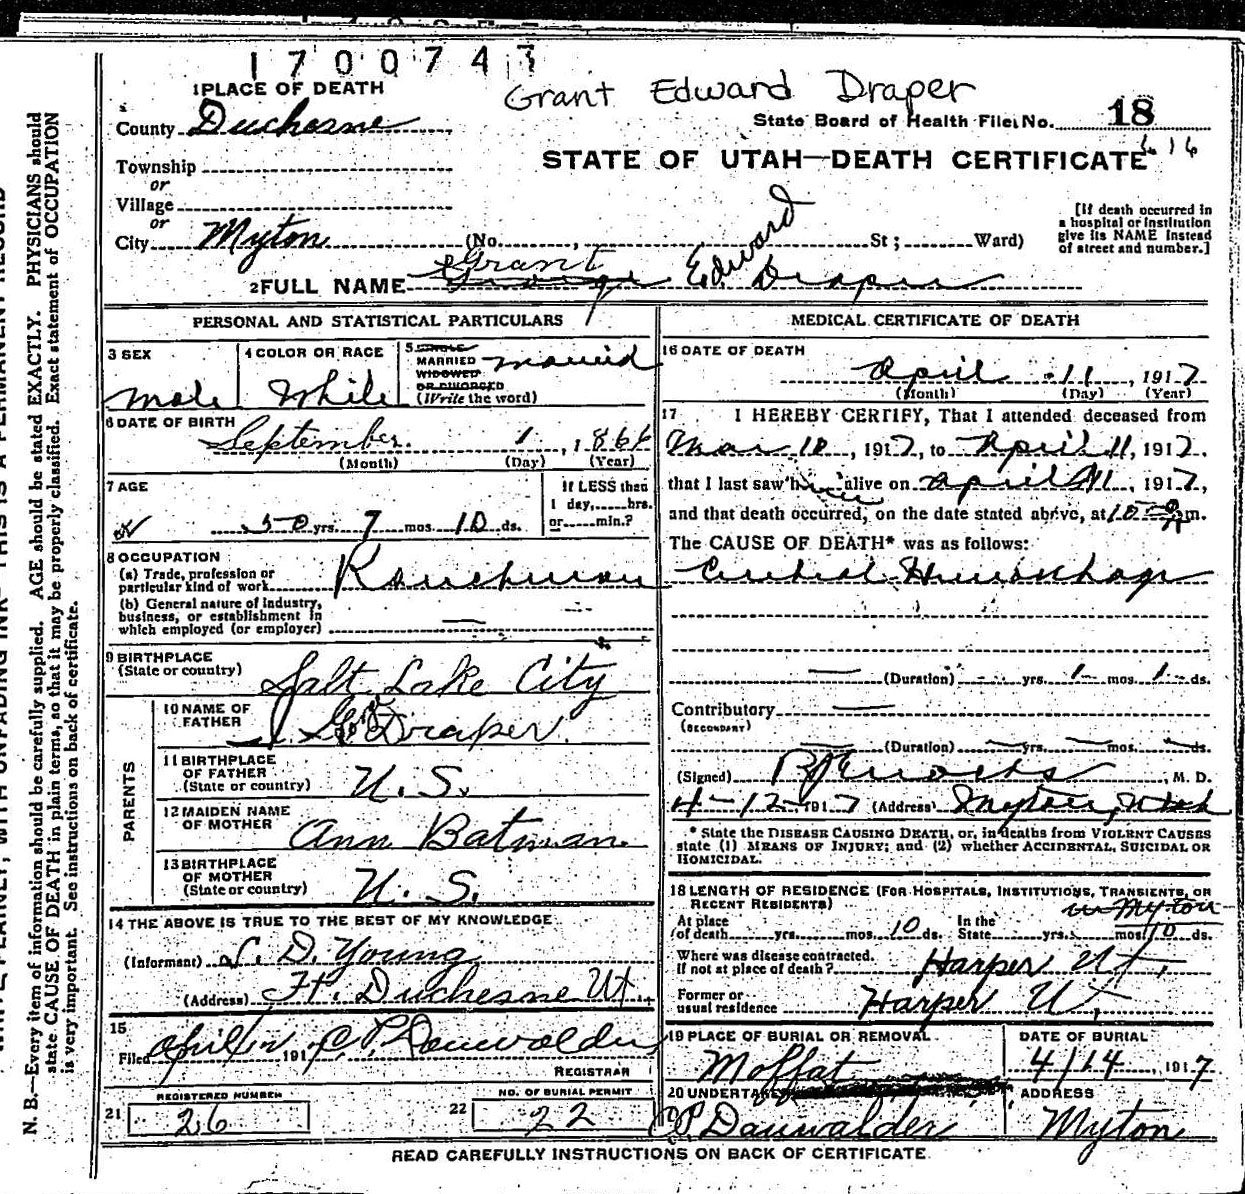 1700747
Grant Edward Draper
1 PLACE OF DEATH
County Duchesne
State Board of Health File No. 18
616
STATE OF UTAH—DEATH CERTIFICATE
Township
or
Village
or
City Myton (No. , St; Ward)
[If death occurred in a hospital or institution give its NAME instead of street and number.]
2 FULL NAME Grant Edward Draper
PERSONAL AND STATISTICAL PARTICULARS
3 SEX
Male
4 COLOR OR RACE
White
5 SINGLE
MARRIED
WIDOWED
OR DIVORCED
(Write the word)
married
6 DATE OF BIRTH
September 1, 1866
(Month) (Day) (Year)
7 AGE
50 yrs. 7 mos. 10 ds.
If LESS then
1 day, hrs.
or min.?
8 OCCUPATION
(a) Trade, profession or
particular kind of work Ranchman
(b) General nature of industry,
business, or establishment in
which employed (or employer) —
9 BIRTHPLACE
(State or country) Salt Lake City
PARENTS
10 NAME OF
FATHER
Draper
11 BIRTHPLACE
OF FATHER
(State or country) U. S.
12 MAIDEN NAME
OF MOTHER Ann Batman
13 BIRTHPLACE
OF MOTHER
(State or country) U. S.
14 THE ABOVE IS TRUE TO THE BEST OF MY KNOWLEDGE
(Informant) D. Young
(Address) Ft. Duchesne Ut.
15
Filed April 12 191 7 C P Dauwalder
REGISTRAR
REGISTERED NUMBER
21 26
NO. OF BURIAL PERMIT
22 22
MEDICAL CERTIFICATE OF DEATH
16 DATE OF DEATH
April 11, 1917
(Month) (Day) (Year)
17 I HEREBY CERTIFY, That I attended deceased from
Mar 10, 1917, to April 11, 1917,
that I last saw him alive on April 11, 1917,
and that death occurred, on the date stated above, at 10 m.
The CAUSE OF DEATH* was as follows:
Cerebral Hemorrhage
— (Duration) — yrs. 1 mos. 1 ds.
Contributory —
(SECONDARY)
— (Duration) — yrs. — mos. — ds.
(Signed) , M. D.
4-12-1917 (Address) Myton, Utah
* State the DISEASE CAUSING DEATH, or, in deaths from VIOLENT CAUSES
state (1) MEANS OF INJURY; and (2) whether ACCIDENTAL, SUICIDAL OR
HOMICIDAL.
18 LENGTH OF RESIDENCE (FOR HOSPITALS, INSTITUTIONS, TRANSIENTS, OR
RECENT RESIDENTS) in Myton
At place
of death yrs. mos. 10 ds. In the
State yrs. mos. 10 ds.
Where was disease contracted.
If not at place of death? Harper Ut,
Former or
usual residence Harper Ut,
19 PLACE OF BURIAL OR REMOVAL
Moffat
DATE OF BURIAL
4/14, 1917
20 UNDERTAKER
C P. Dauwalder
ADDRESS
Myton
READ CAREFULLY INSTRUCTIONS ON BACK OF CERTIFICATE
N. B.—Every item of information should be carefully supplied. AGE should be stated EXACTLY. PHYSICIANS should
state CAUSE OF DEATH in plain terms, so that it may be properly classified. Exact statement of OCCUPATION
is very important. See instructions on back of certificate.